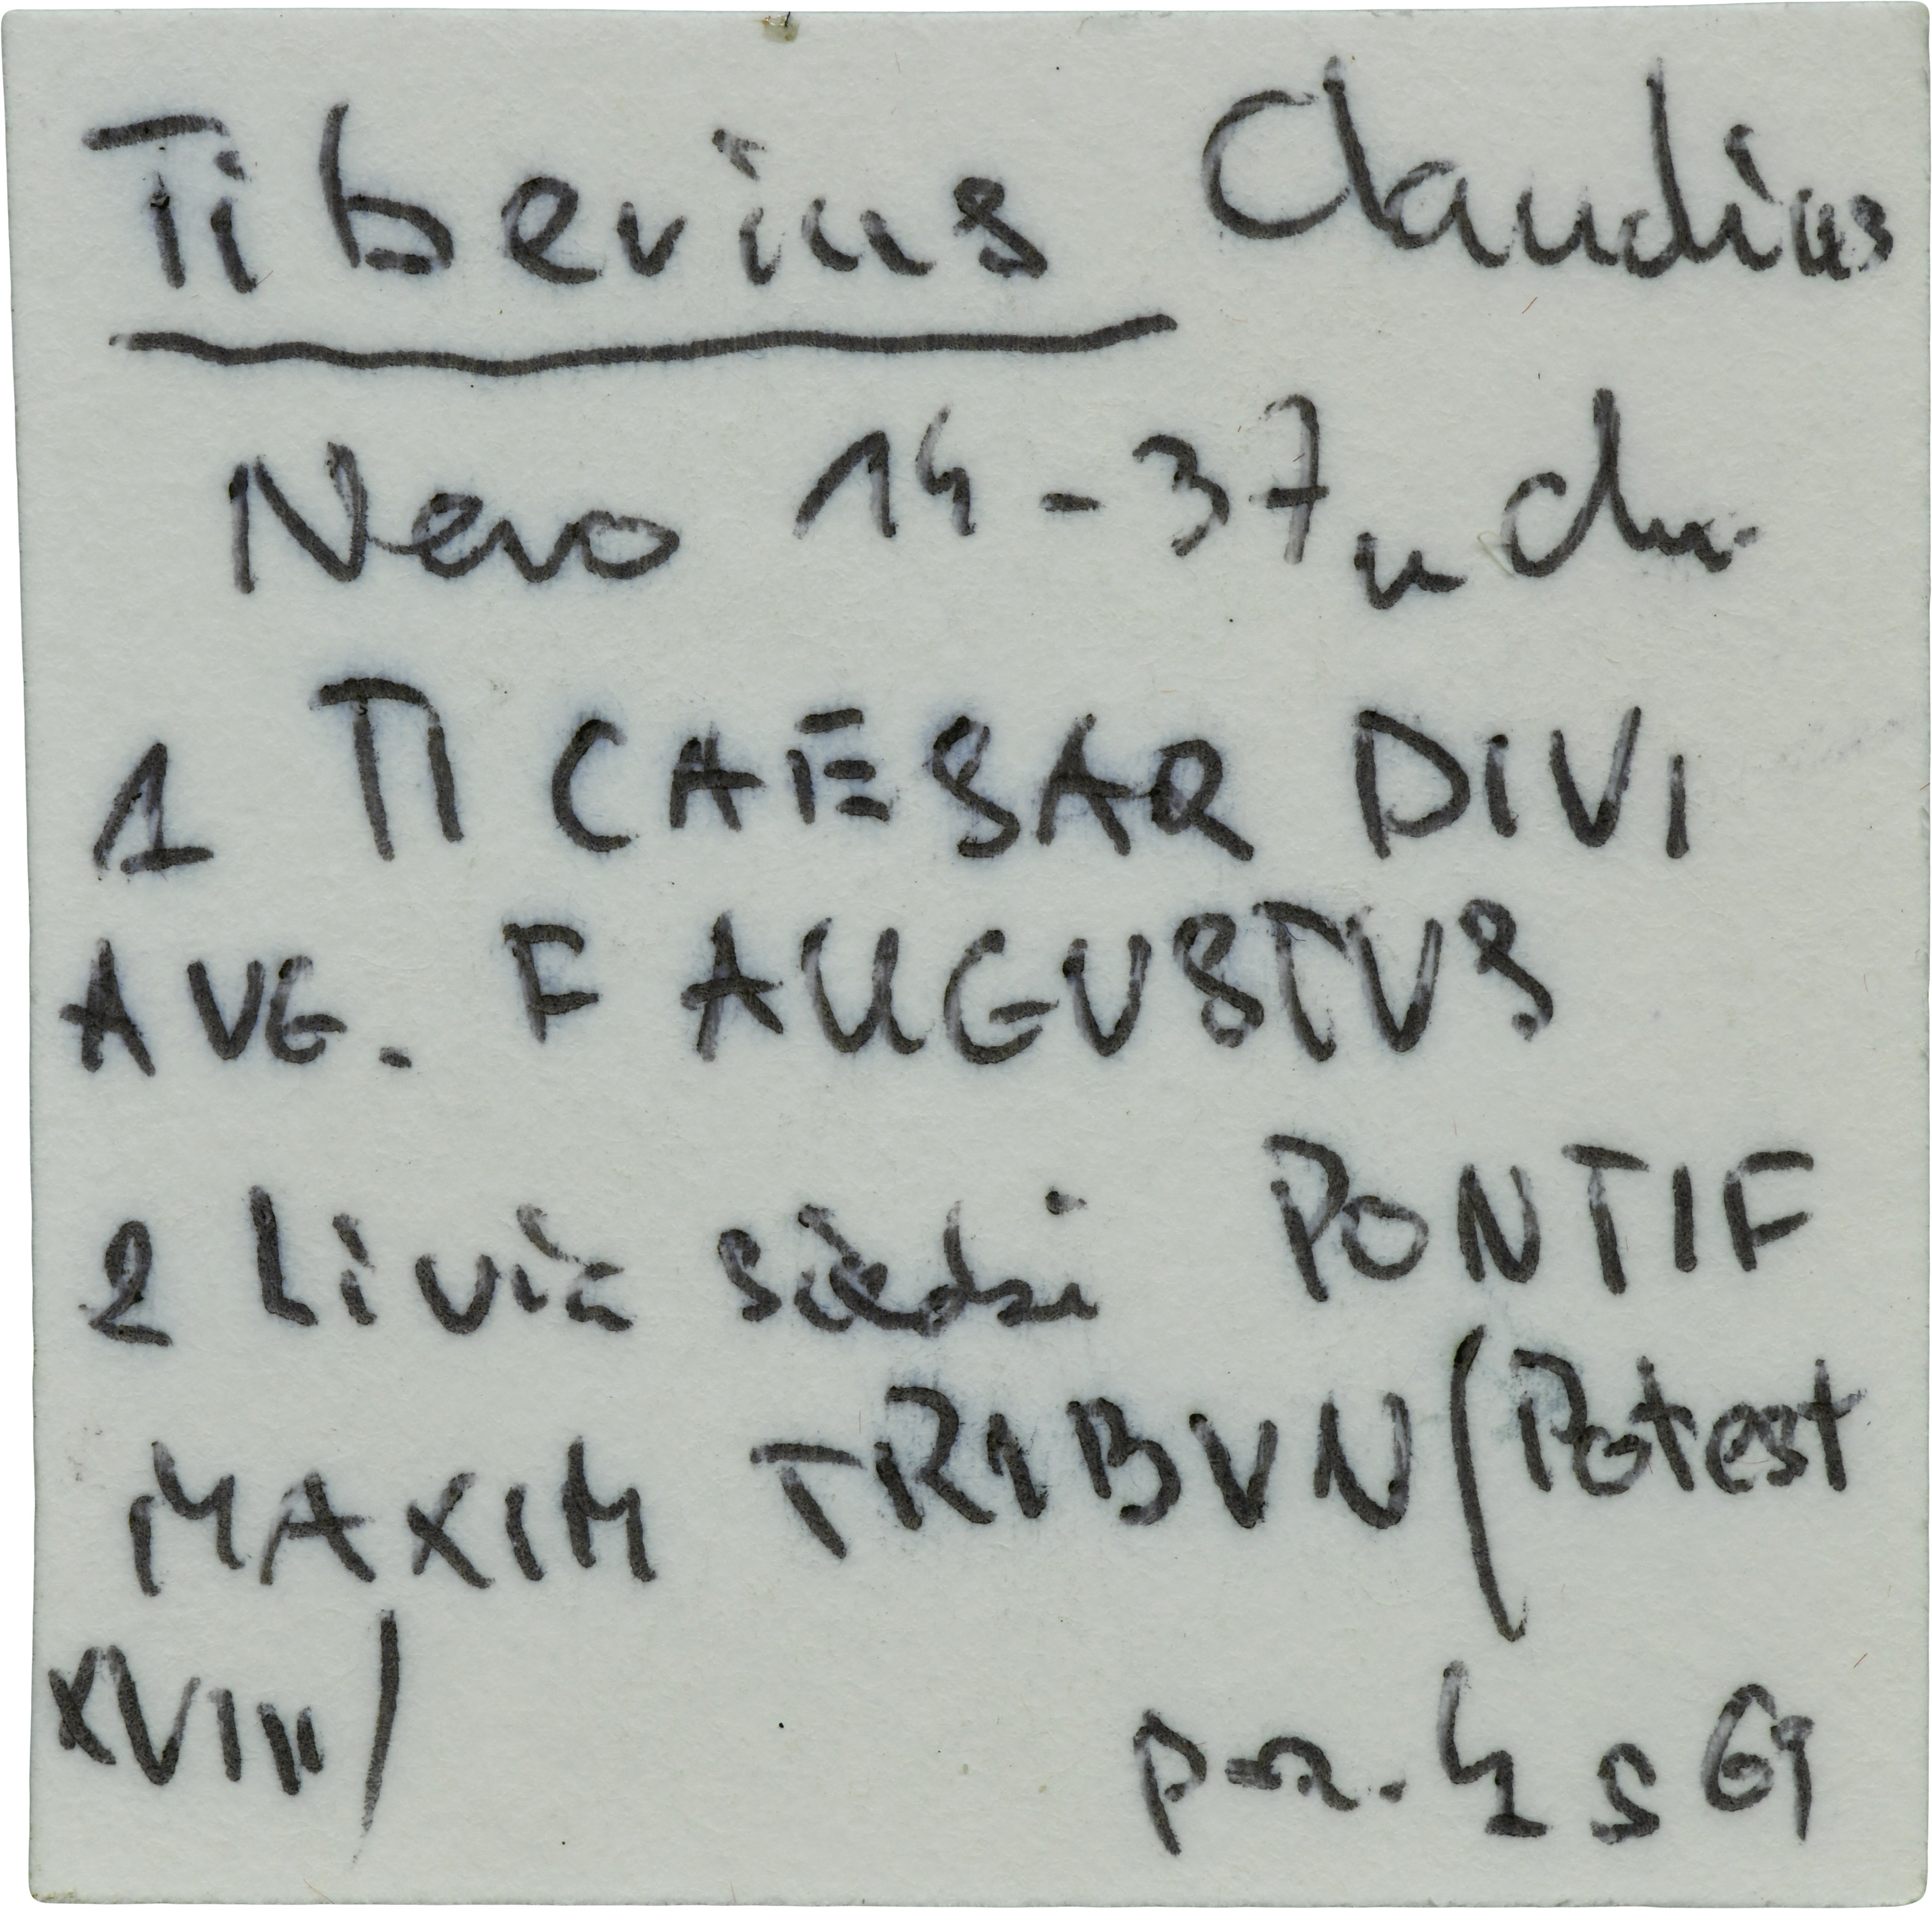 Tiberius Claudius
Nero 14-37
1 TI CAESAR DIVI
AVG. F AUGUSTVS
2 Livia siedzi PONTIF
MAXIM TRIBVN (Potest
XVIII)
poz. 4 s 69